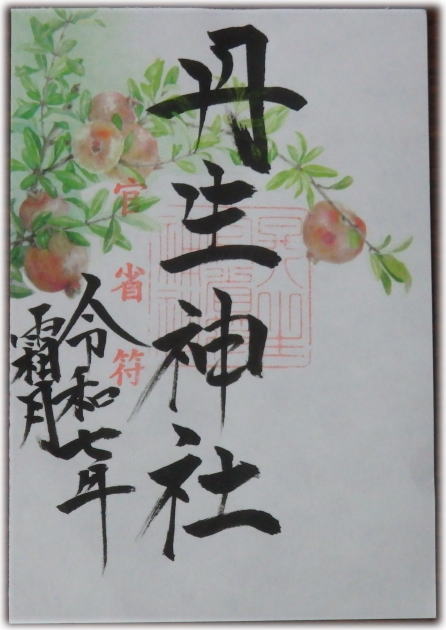 丹生神社
官省符
令和七年
霜月